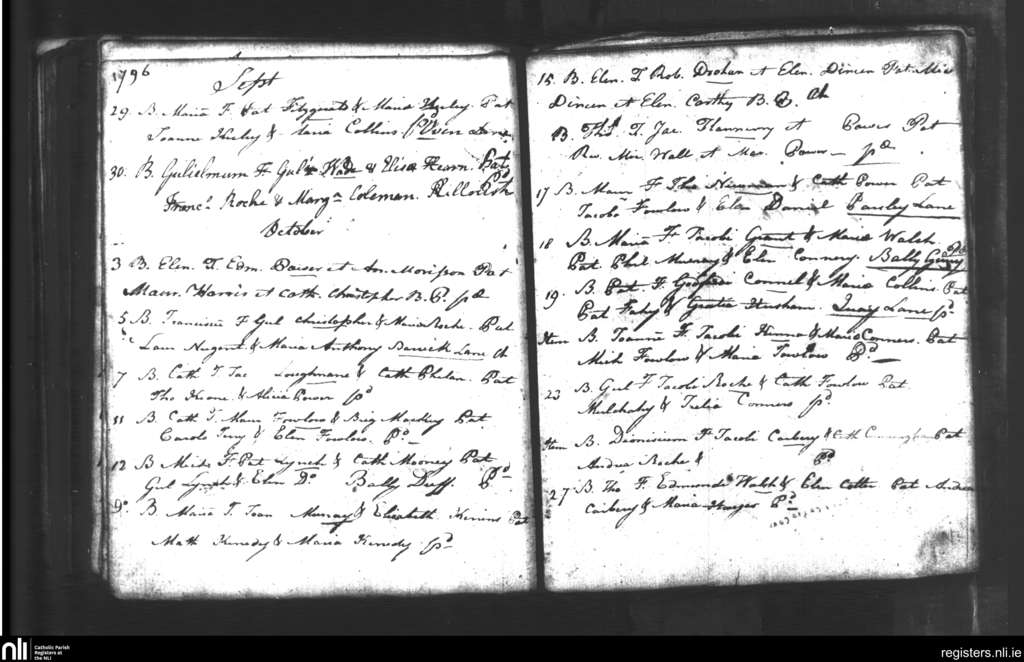 1796
Sept
29 B. Maria F. Pat Fitzgerald & Maria Hurley. Pat
Joanne Hurley & Maria Collins pd Oven Lane
30. B. Gulielmum F Gul Wade & Elisa Hearn. Pat
Franc. Roche & Marg. Coleman. Killotish pd
October
3 B. Elen. F. Edm. Power et An. Morisson Pat
Maur. Harris et Cath. Christopher B. P. pd
5 B. Franciscu F Gul Christopher & Maria Roche. Pat
Laur Nugent & Maria Anthony Barwick Lane Ch
7 B. Cath F Jac Loughmane & Cath Phelan. Pat
Tho Keane & Alicia Power pd
11 B. Cath F. Maur Fowlow & Brig Mackey Pat
Carolo & Elen Fowlow. Pd
12 B Mich F. Pat Lynch & Cath Mooney Pat
Gul Lynch & Elen Do Bally Duff. Pd
9 B Maria F. Joan Murray & Elisabeth Pat
Math Kenedy & Maria Kenedy pd
15. B. Elen. F Rob. Drohan et Elen. Dineen Pat. Mic
Dineen et Elen. Carthy B. Ch
B. Tho. F. Jac. Flannery et Power Pat
Rev. Mic. Wall et Mar. Power pd
17 B. Maur F Tho Newman & Cath Power Pat
Jacob Fowlow & Elen Daniel Parsley Lane
18 B. Maria F. Jacobi Grant & Maria Walsh
Pat Phil Murray & Elen Connery. Bally Gunny pd
19. B Pat F Godfredi Connel & Maria Collins. Pat
Pat Fahy & Gratia Husham. Quay Lane pd
Item B. Joanne F. Jacobi & Maria Conners. Pat
Mich Fowlow & Maria Fowlow Pd
23 B. Gul F Jacobi Roche & Cath Fowlow Pat
Mulchahy & Conners pd
Item B. Dionisium F Jacobi Carbery & Cath Cunningham Pat
Andrea Roche & Pd
27 B. Tho F. Edmond Walsh & Elen Cotter Pat Andrea
Carbery & Maria Pd
nli Catholic Parish
Registers at
the NLI
registers.nli.ie